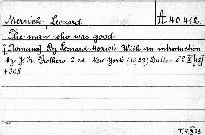 Merrick, Leonard A 40.412
The man who was good
[Romano] By Leonard Merrick With an introduction
by J. K. Prothero. 2. ed. New York (1923) Dutton 8°
+308